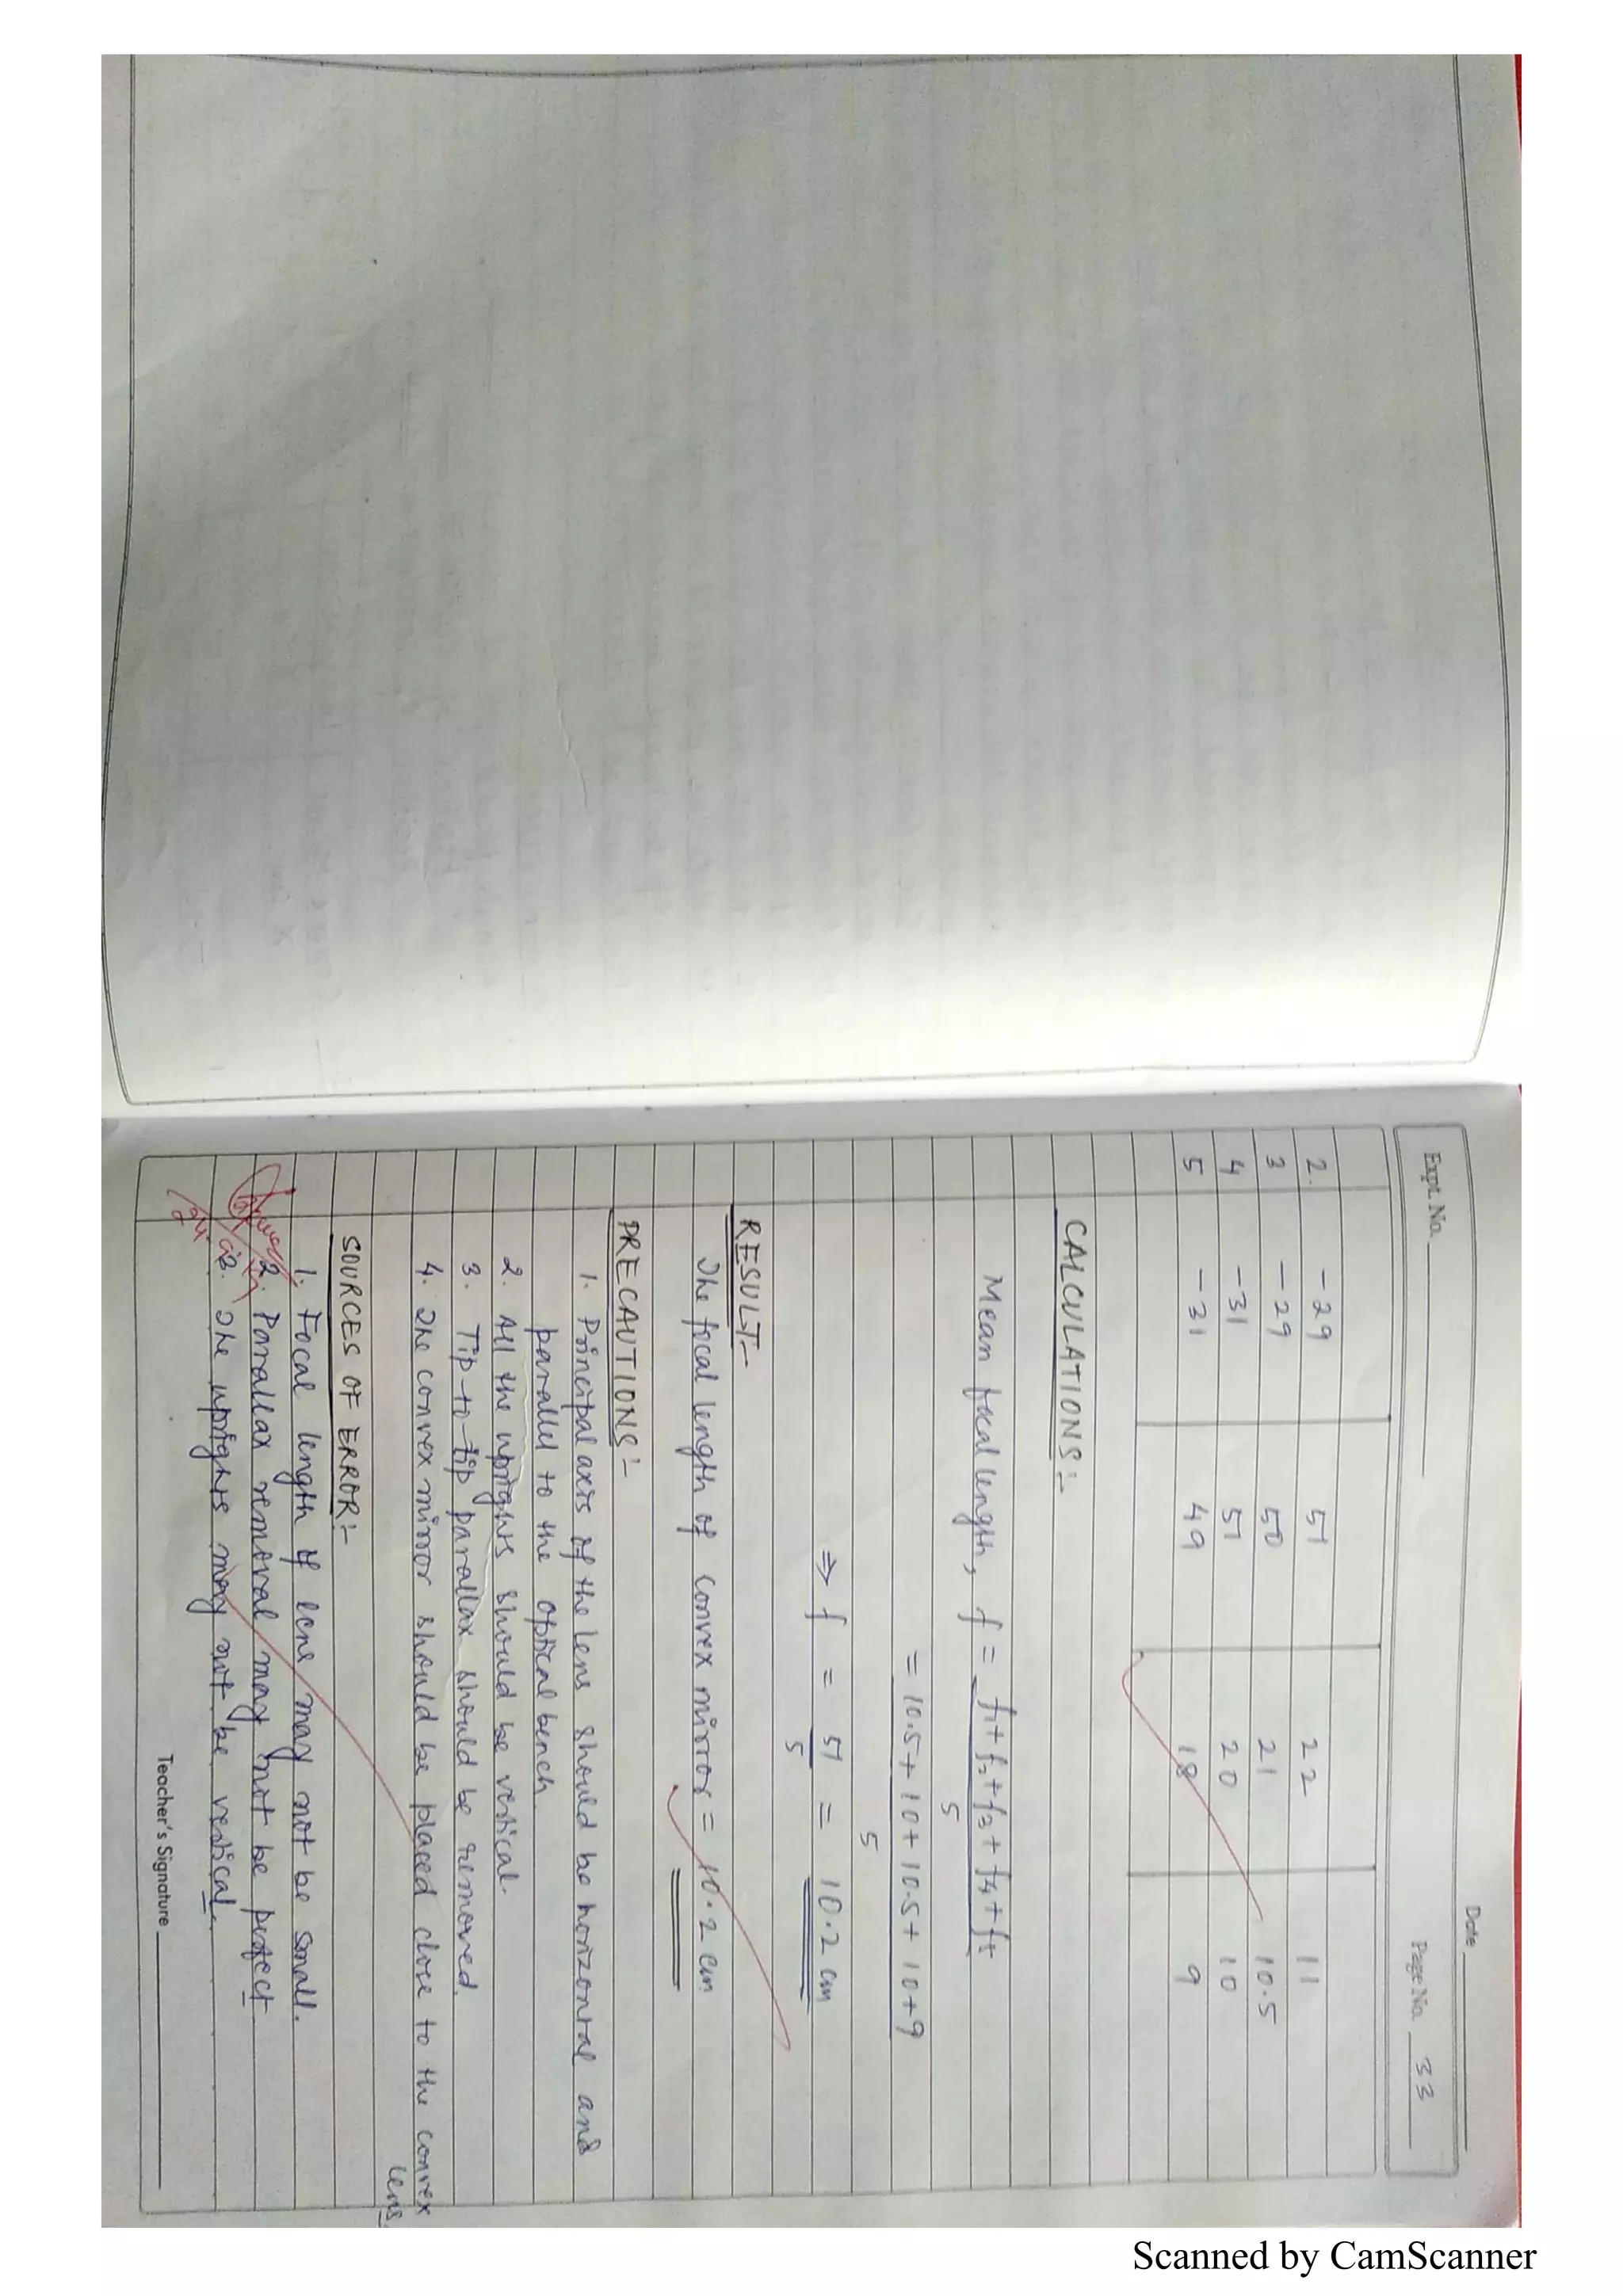 Date
Expt. No.
Page No. 33
2. -29 51 22 11
3 -29 50 21 10.5
4 -31 51 20 10
5 -31 49 18 9
CALCULATIONS:-
Mean focal length, f = f1+f2+f3+f4+f5
5
= 10.5+10+10.5+10+9
5
⇒ f = 51 = 10.2 cm
5
RESULT:-
The focal length of convex mirror = 10.2 cm
PRECAUTIONS:-
1. Principal axis of the lens should be horizontal and
parallel to the optical bench.
2. All the uprights should be vertical.
3. Tip-to-tip parallax should be removed.
4. The convex mirror should be placed close to the convex
lens.
SOURCES OF ERROR:-
1. Focal length of lens may not be small.
2. Parallax removal may not be perfect
3. The uprights may not be vertical.
Teacher's Signature
Scanned by CamScanner